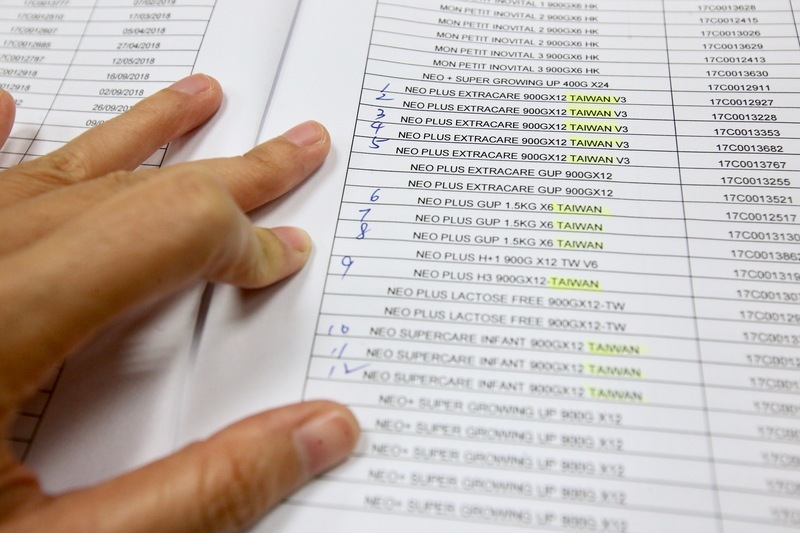 07/02/2019
17/03/2018
05/04/2018
27/04/2018
12/05/2018
16/09/2018
02/09/2018
26/09/201
MON PETIT INOVITAL 1 900GX6 HK 17C0013628
MON PETIT INOVITAL 2 900GX6 HK 17C0012415
MON PETIT INOVITAL 2 900GX6 HK 17C0013026
MON PETIT INOVITAL 3 900GX6 HK 17C0013629
MON PETIT INOVITAL 3 900GX6 HK 17C0012413
NEO + SUPER GROWING UP 400G X24 17C0013630
1 NEO PLUS EXTRACARE 900GX12 TAIWAN V3 17C0012911
2 NEO PLUS EXTRACARE 900GX12 TAIWAN V3 17C0012927
3 NEO PLUS EXTRACARE 900GX12 TAIWAN V3 17C0013228
4 NEO PLUS EXTRACARE 900GX12 TAIWAN V3 17C0013353
5 NEO PLUS EXTRACARE 900GX12 TAIWAN V3 17C0013682
NEO PLUS EXTRACARE GUP 900GX12 17C0013767
NEO PLUS EXTRACARE GUP 900GX12 17C0013255
6 NEO PLUS GUP 1.5KG X6 TAIWAN 17C0013521
7 NEO PLUS GUP 1.5KG X6 TAIWAN 17C0012517
8 NEO PLUS GUP 1.5KG X6 TAIWAN 17C0013130
NEO PLUS H+1 900G X12 TW V6 17C001386
9 NEO PLUS H3 900GX12-TAIWAN 17C001319
NEO PLUS LACTOSE FREE 900GX12-TW 17C00130
NEO PLUS LACTOSE FREE 900GX12-TW
10 NEO SUPERCARE INFANT 900GX12 TAIWAN
11 NEO SUPERCARE INFANT 900GX12 TAIWAN
12 NEO SUPERCARE INFANT 900GX12 TAIWAN
NEO+ SUPER GROWING UP 900G X12
NEO+ SUPER GROWING UP 900G X12
NEO+ SUPER GROWING UP 900G X12
NEO+ SUPER GROWING UP 900G X12
NEO+ SUPER GROWING UP 900G X12